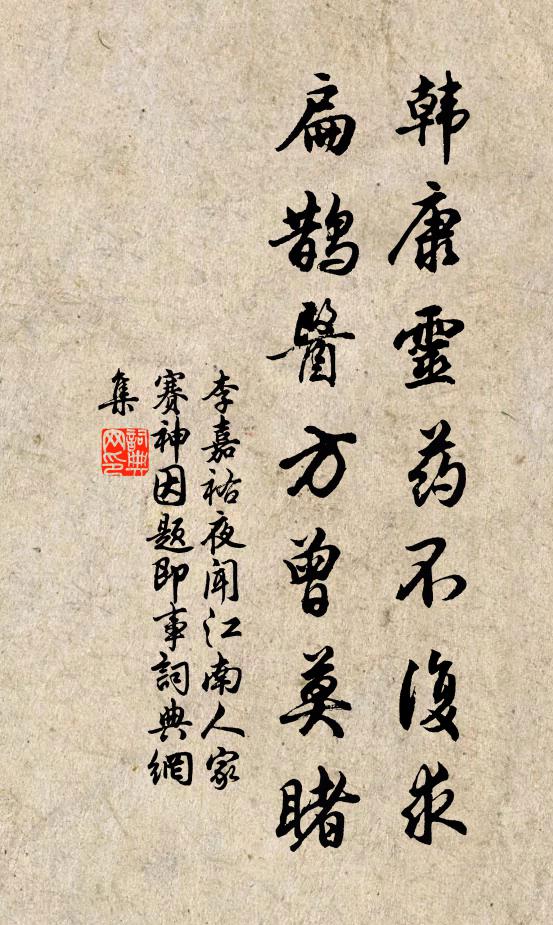 韩康靈药不復求
扁鹊醫方曾莫睹
李嘉祐夜闻江南人家
赛神因题即事詞典網
集
詞典
网印